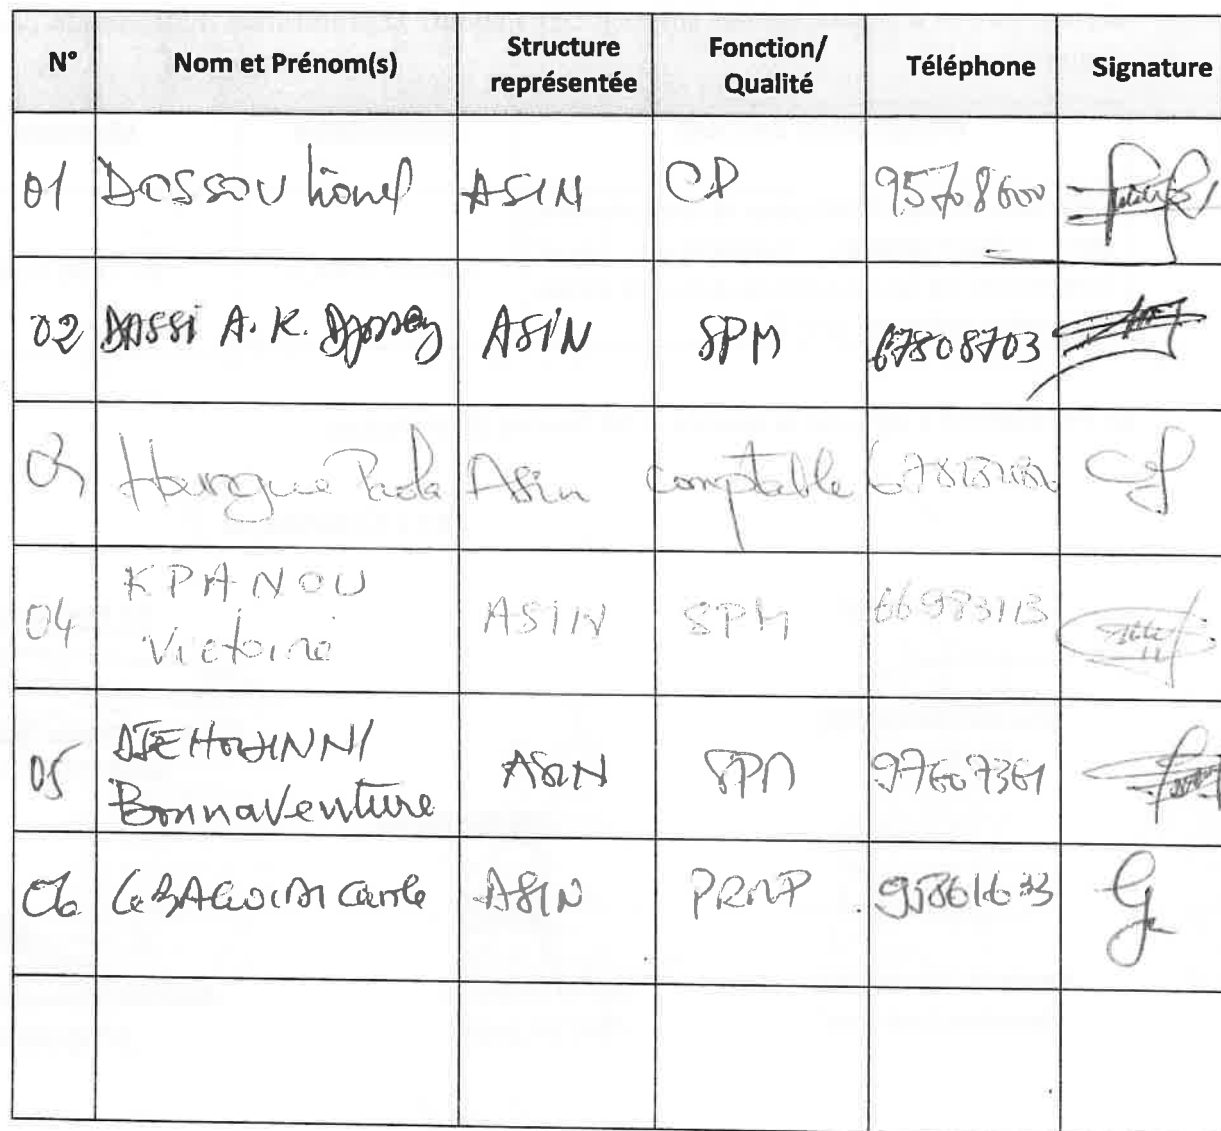 N° Nom et Prénom(s) Structure représentée Fonction/ Qualité Téléphone Signature
01 DOSSOU Lionel ASIN CP 95708600
02 DASSI A. K. ASIN SPM 67808703
03 Paola Asin comptable
04 KPANOU Victoire ASIN SPM 66983113
05 DJEHOUINNI Bonnaventure ASIN SPM 97607361
06 Carole ASIN PRMP 95861633